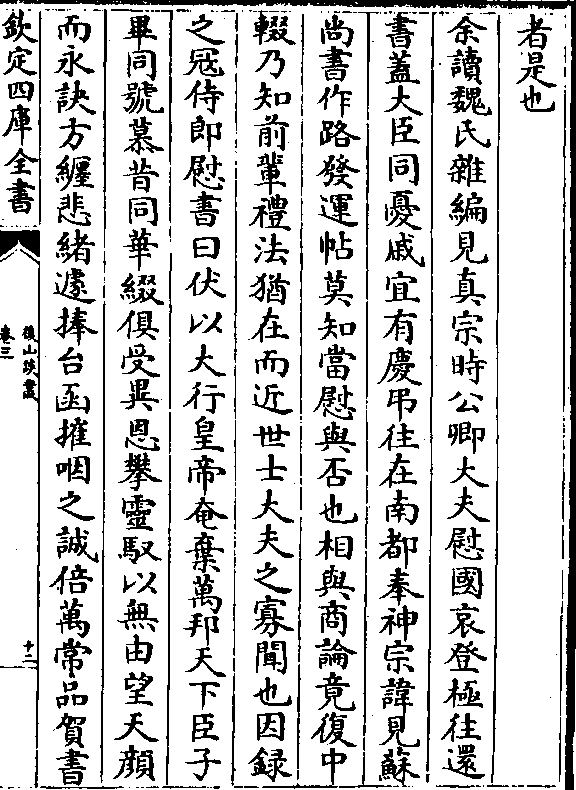 者是也
余讀魏氏雜編見真宗時公卿大夫慰國哀登極往還
書蓋大臣同憂戚宜有慶弔往在南都奉神宗諱見蘇
尚書作路發運帖莫知當慰與否也相與商論竟復中
輟乃知前輩禮法猶在而近世士大夫之寡聞也因録
之冦侍郎慰書曰伏以大行皇帝奄棄萬邦天下臣子
畢同號慕昔同華綴俱受異恩攀靈馭以無由望天顔
而永訣方纏悲緒遽捧台函摧咽之誠倍萬常品賀書
欽定四庫全書
後山談叢
卷三
十二